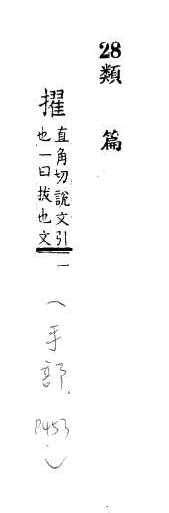 28類篇
擢直角切說文引
也一曰拔也文
一
(手部,P453)